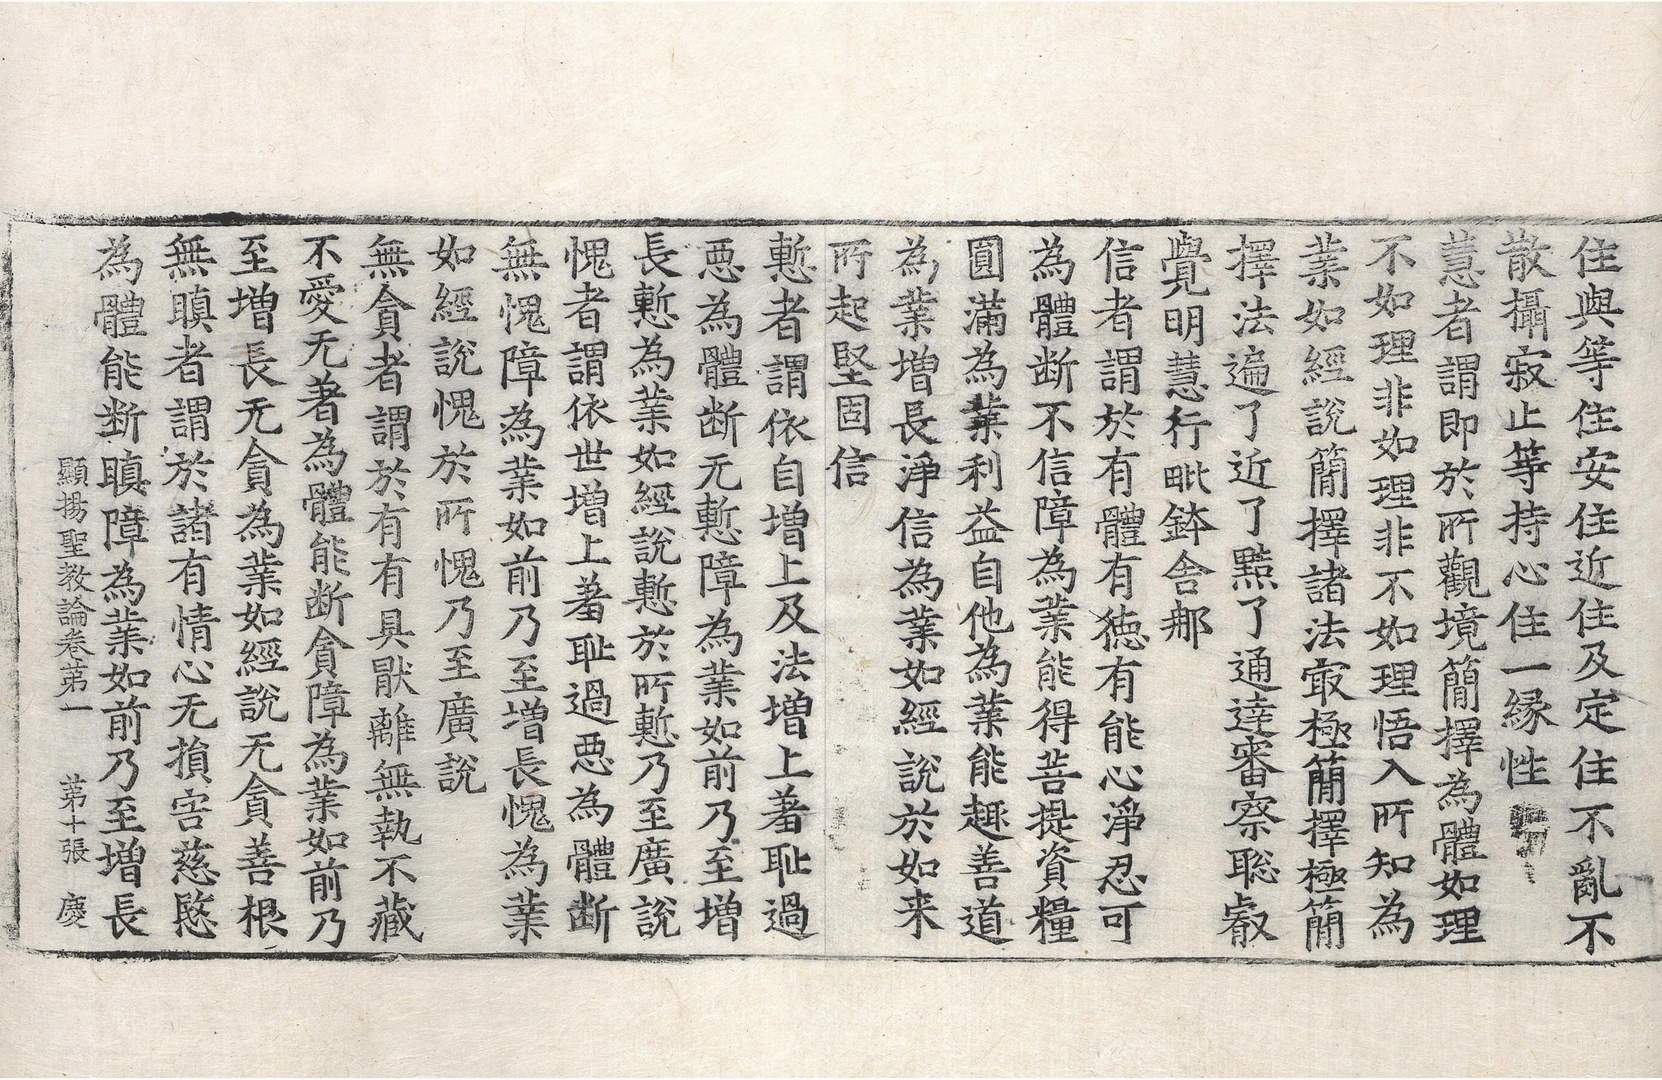 住與等住安住近住及定住不亂不
散攝寂止等持心住一緣性
慧者謂即於所觀境簡擇為體如理
不如理非如理非不如理悟入所知為
業如經說簡擇諸法㝡極簡擇極簡
擇法遍了近了黠了通達審察聡叡
覺明慧行毗鉢舍那
信者謂於有體有徳有能心淨忍可
為體斷不信障為業能得菩提資糧
圓滿為業利益自他為業能趣善道
為業増長淨信為業如經說於如来
所起堅固信
慙者謂依自増上及法増上羞恥過
惡為體断无慙障為業如前乃至増
長慙為業如經說慙於所慙乃至廣說
愧者謂依世増上羞恥過惡為體断
無愧障為業如前乃至増長愧為業
如經說愧於所愧乃至廣說
無貪者謂於有有具猒離無執不藏
不愛无著為體能断貪障為業如前乃
至増長无貪為業如經說无貪善根
無瞋者謂於諸有情心无損害慈愍
為體能断瞋障為業如前乃至増長
顯揚聖教論卷苐一 苐十張 慶